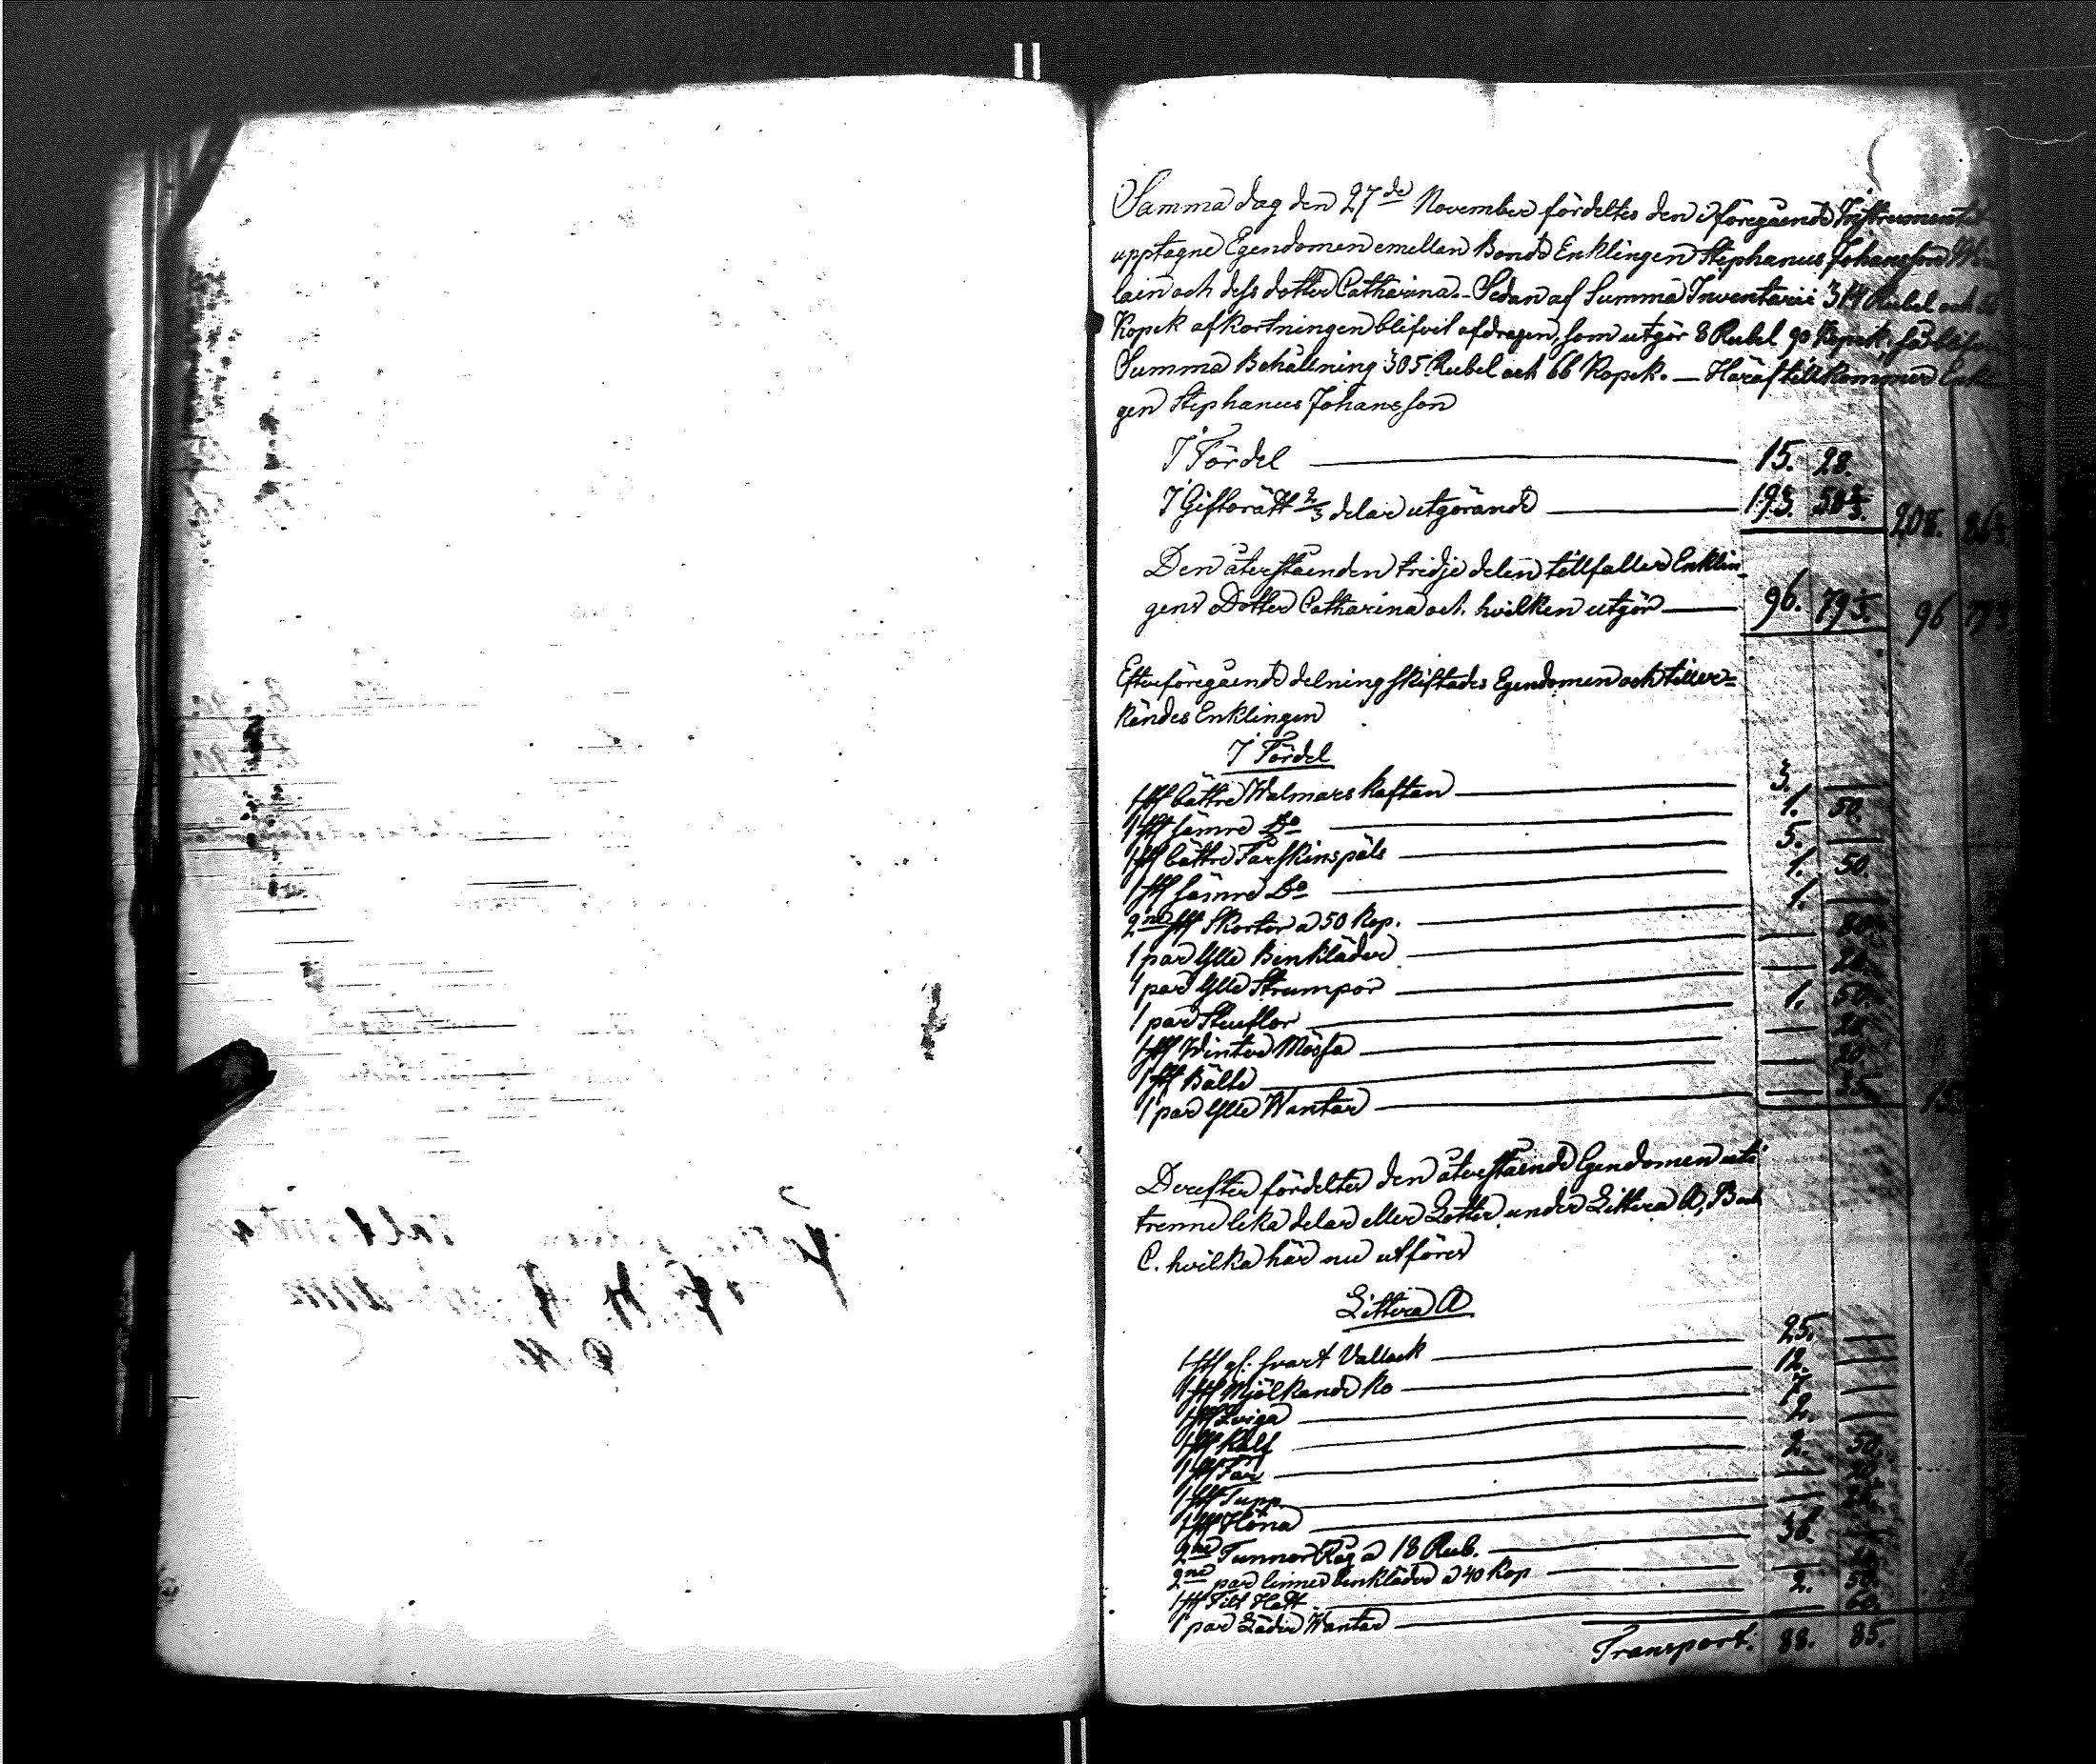 Samma dag den 27de November fördeltes den i föregående Instrumentet
upptagne Egendomen emellan Bonde Enklingen Stephanus Johansson
lain och dess dotter Catharina. - Sedan af Summa Inventarii 314 Rubel och
Kopek afkortningen blifvit afdragen, som utgör 8 Rubel 90 Kopek, så blifver
Summa Behållning 305 Rubel och 66 Kopek. — Häraf tillkommer Enklin
gen Stephanus Johansson
I Fördel — 15. 28.
I Giftorätt 2/3 delar utgörande — 193. 58 2/3. 208. 86 2/3.
Den återstäenden tredje delen tillfaller Enklin-
gens Dotter Catharina och hvilken utgör — 96. 79 1/3. 96 79 1/3
Efter föregående delning skiftades Egendomen och tiller=
kändes Enklingen
I Fördel
1 st bättre Walmars kaftan — 3. —
1 st sämre Do — 1. 50.
1 st bättre Fårskinspäls — 5. —
1 st sämre Do — 1. 50.
2ne st Skortor a 50 Kop. — 1. —
1 par Ylle Benkläder — 80
1 par Ylle Strumpor —
1 par Stueflor — 1. 50.
1 st Winter Mössa —
1 st Bälte — 20.
1 par Ylle Wantar — 35. 15.
Derefter fördeltes den återstäende Egendomen uti
trenne lika delar eller Lotter under Littera A, B och
C. hvilka här nu utföres
Littera A
1 st gl: svart Vallack — 25. —
1 st Mjölkande ko — 12. —
1 st Qviga — 7. —
1 st Kalf — 2. —
1 st Får — 2. 50.
1 st Tupp — 20.
1 st Höna — 25.
2ne Tunnor Råg a 18 Rub. — 36. —
2ne par linnes benkläder a 40 Kop — 80.
1 st Filt Hatt — 2. 50.
1 par Läder Wantar — 60.
Transport. 88. 85.